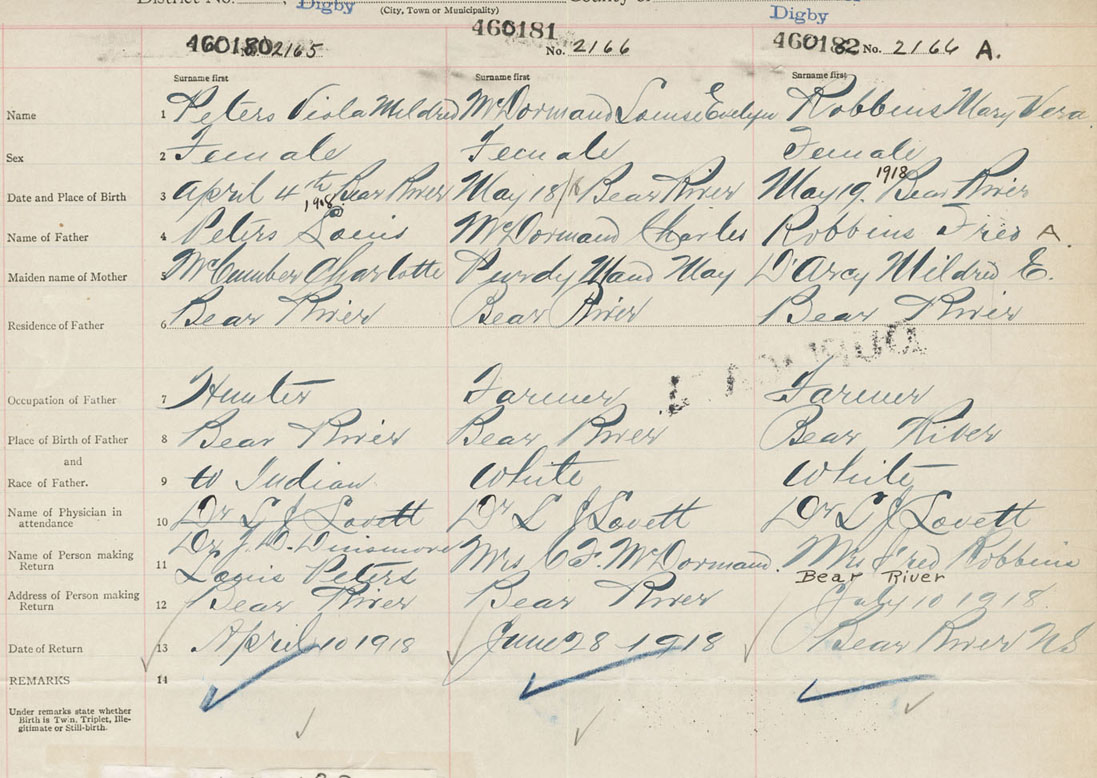 District No.
Digby
(City, Town or Municipality)
County of
Digby
460180 No. 2165
460181 No. 2166
460182 No. 2166 A.
Surname first
Surname first
Surname first
Name 1 Peters Viola Mildred McDormand Louise Evelyn Robbins Mary Vera
Sex 2 Female Female Female
Date and Place of Birth 3 April 4th 1918 Bear River May 18/18 Bear River May 19. 1918 Bear River
Name of Father 4 Peters Louis McDormand Charles Robbins Fred A.
Maiden name of Mother 5 McCumber Charlotte Purdy Maud May D'Arcy Mildred E.
Residence of Father 6 Bear River Bear River Bear River
Occupation of Father 7 Hunter Farmer Farmer
Place of Birth of Father 8 Bear River Bear River Bear River
and
Race of Father. 9 Indian White White
Name of Physician in attendance 10 Dr L J Lovett Dr L J Lovett Dr L J Lovett
Dr J. D. Dinsmore
Name of Person making Return 11 Louis Peters Mrs C F. McDormand. Mrs Fred Robbins
Bear River
Address of Person making Return 12 Bear River Bear River July 10 1918.
Date of Return 13 April 10 1918 June 28 1918 Bear River NS
REMARKS 14
Under remarks state whether
Birth is Twin, Triplet, Ille-
gitimate or Still-birth.